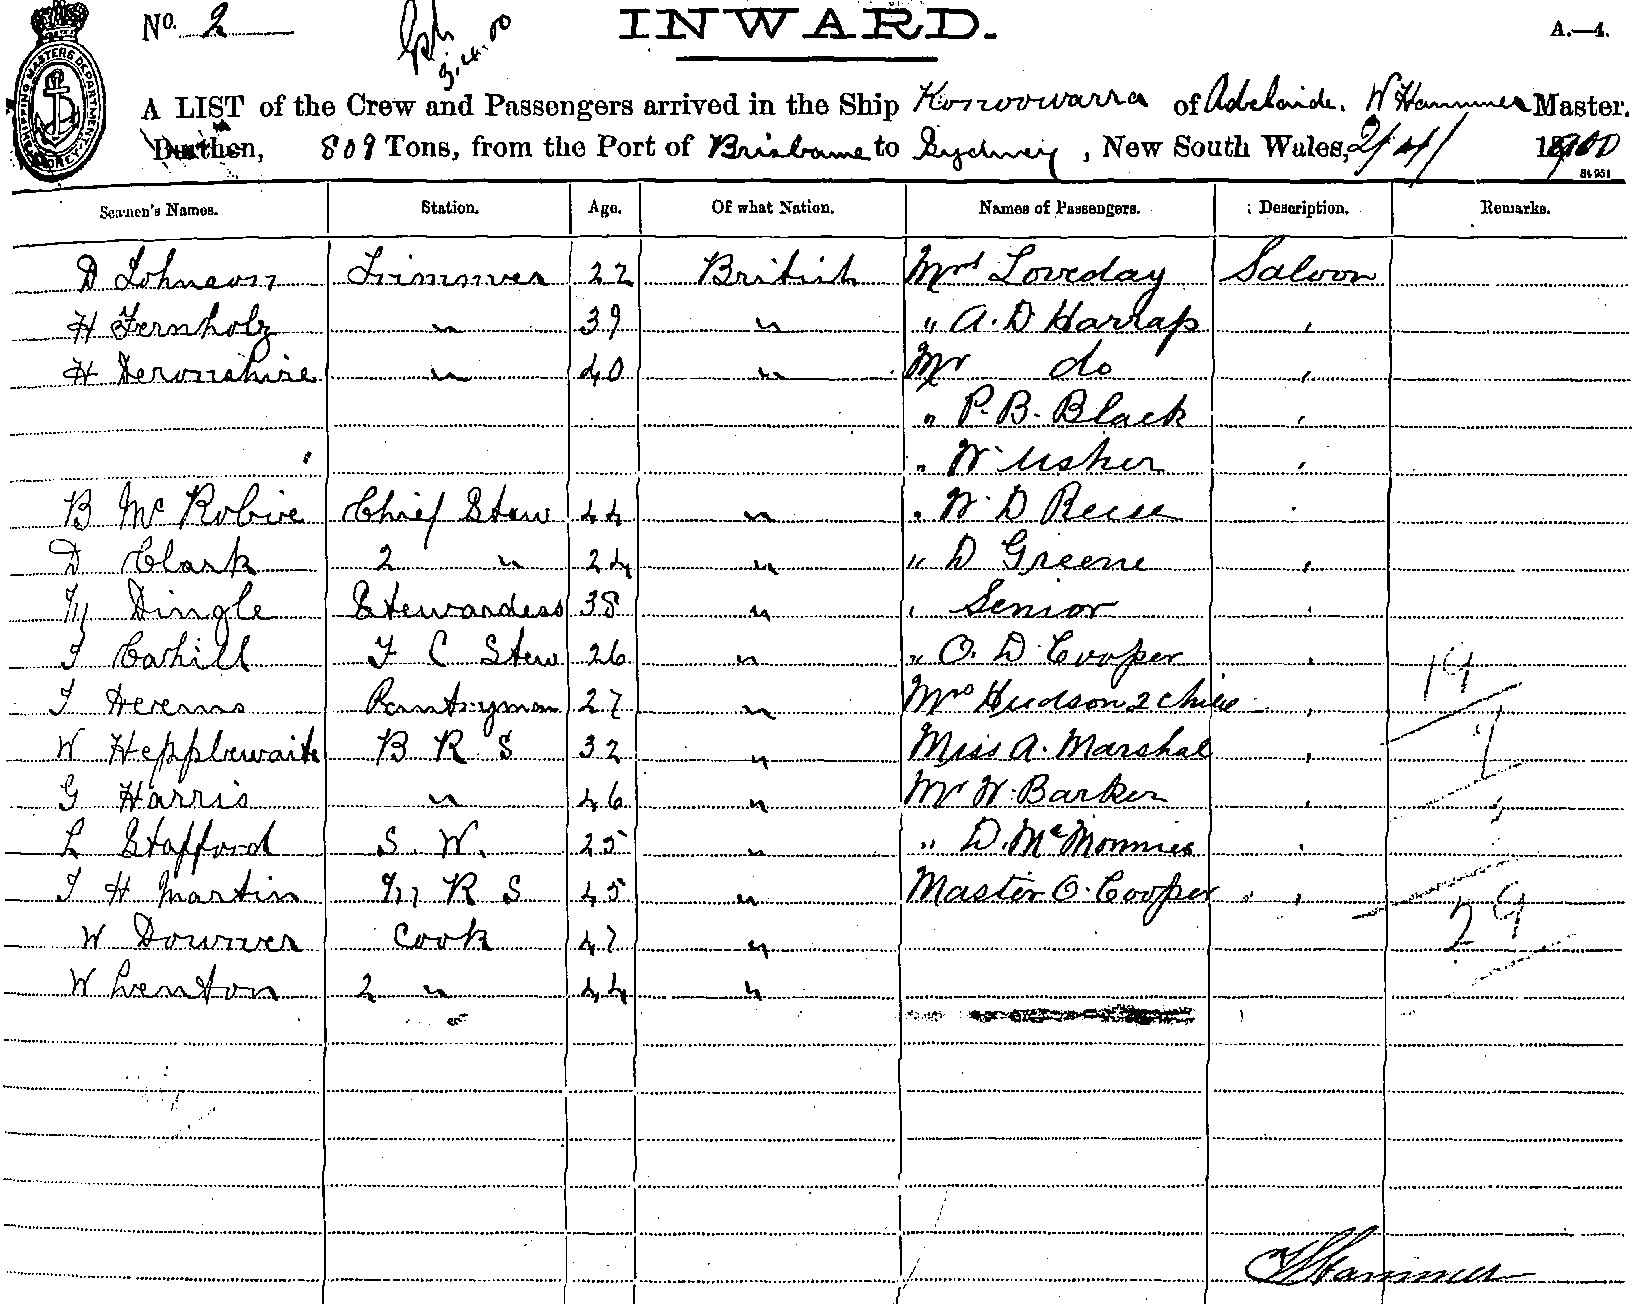 No. 2
3.4.00
INWARD.
A.—4.
SHIPPING MASTERS DEPARTMENT
A LIST of the Crew and Passengers arrived in the Ship Konoowarra of Adelaide. W Hammer Master.
Burthen, 809 Tons, from the Port of Brisbane to Sydney, New South Wales, 2/4/ 1900
Seamen's Names. Station. Age. Of what Nation. Names of Passengers. Description. Remarks.
D Johnson Trimmer 22 British Mrs Loveday Saloon
H Fernholz " 39 " " A. D Harrap "
H Devonshire " 40 " Mr do "
" P. B. Black "
" W Usher "
B Mc Robive Chief Stew 44 " " W. D Reise "
D Clark 2 " 24 " " D Greene "
M Dingle Stewardess 38 " " Senior "
T Cahill F C Stew 26 " " O. D. Cooper " 19
T Herems Pantryman 27 " Mrs Hudson 2 chil "
W Hepplewaite B R S 32 " Miss A. Marshal "
G Harris " 46 " Mr W. Barker "
L Stafford S. W. 25 " " D. McMonnies "
T H Martin M R S 45 " Master O. Cooper " "
W Downer Cook 47 " 29
W Lenton 2 " 44 "
W Hammer